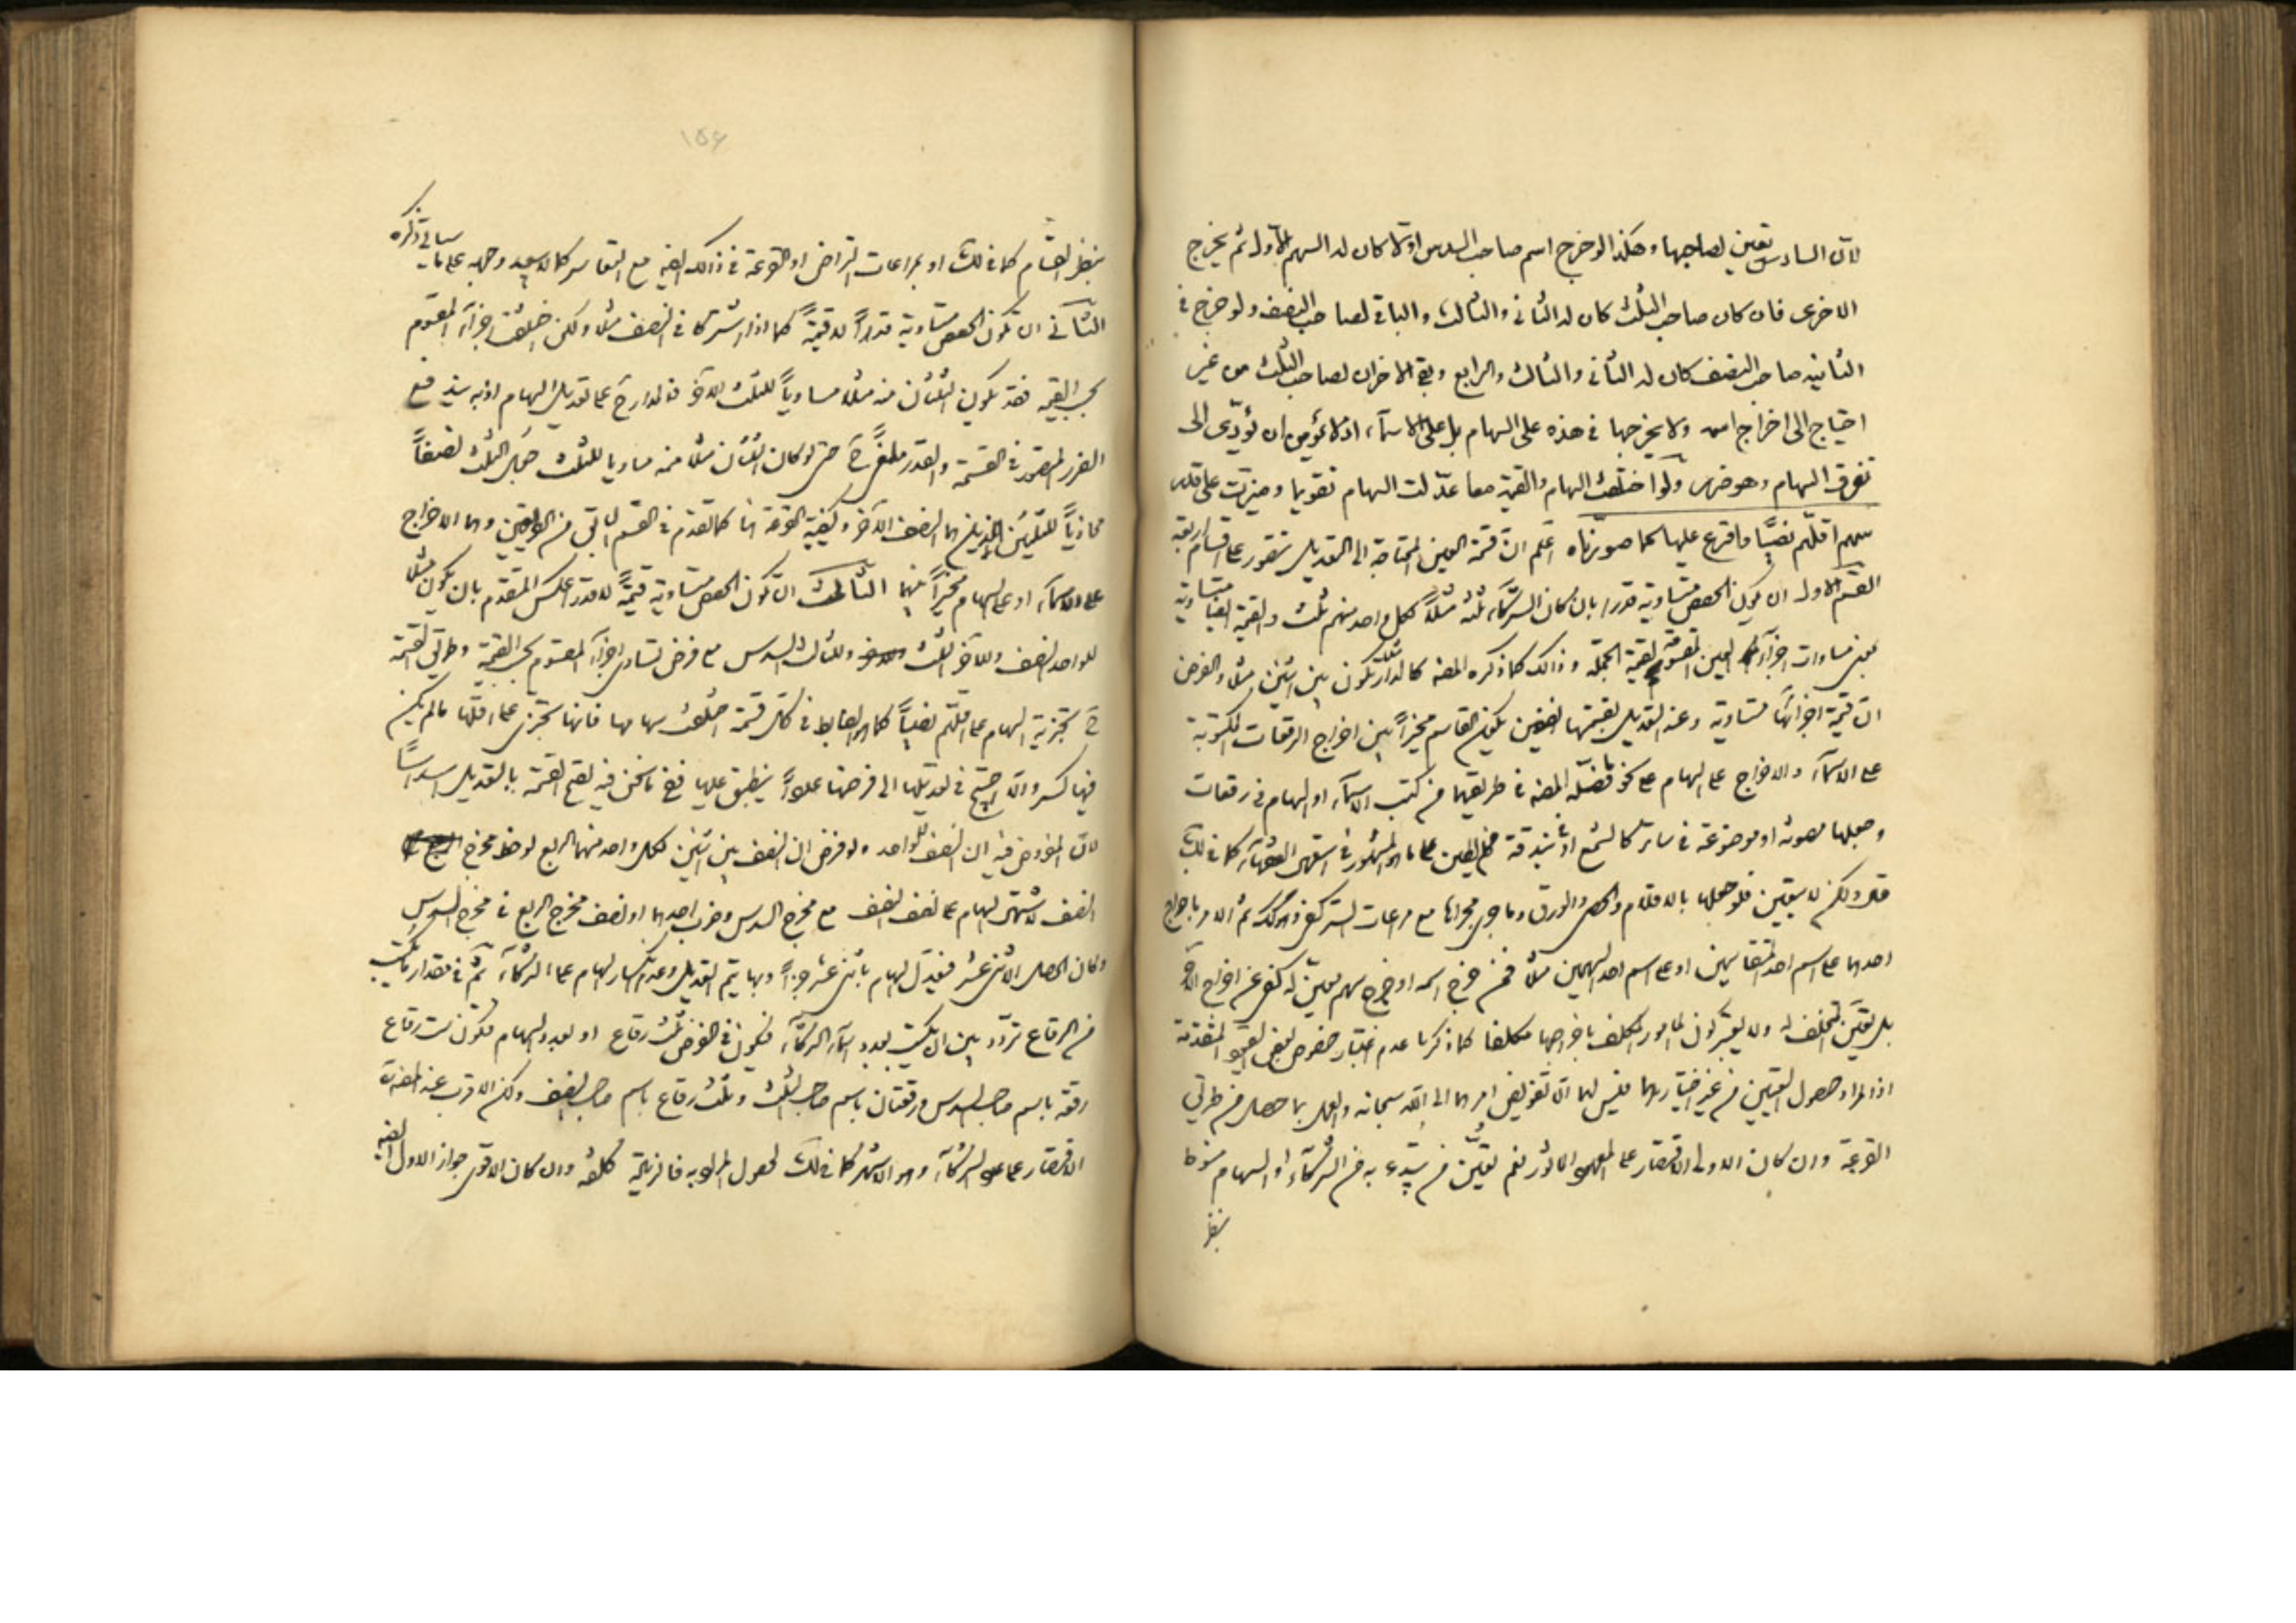 لان السادس تعين لصاحبها وهكذا لو خرج اسم صاحب السدس اولا كان له السهم الاول ثم يخرج
الاخرى فان كان صاحب الثلث كان له الثانى والثالث والباقى لصاحب النصف ولو خرج فى
الثانيه صاحب النصف كان له الثانى والثالث والرابع وبقى الاخران لصاحب الثلث من غير
احتياج الى اخراج اسمه ولا يخرجها فى هذه على السهام بل على الاسمآء اذ لا يؤمن ان يؤدّى الى
تفرق السهام وهو ضرر ولو اختلفت السهام والقيمة معا عدّلت السهام تقويما وميزت على قدر
سهم اقلّهم نصيبًا واقرع عليها كما صورناه اعلم انّ قسمة العين المحتاجة الى التعديل تتصور على اقسام اربعة
القسم الاول ان يكون الحصص متساوية قدرا بان كان الشركآء ثلثه مثلاً لكل واحد منهم ثلث والقيمة ايضا متساوية
بمعنى مساوات اجزآء العين المقسومة لقيمة الجملة وذالك كما ذكره المصنف كالدار تكون بين اثنين مثلا والفرض
ان قيمة اجزائها متساوية وعند التعديل بقسمتها نصفين يكون القاسم مخيراً بين اخراج الرقعات المكتوبة
على الاسمآء والاخراج على السهام على نحو ما فصّله المصنف فى طريقهما من كتب الاسمآء او السهام فى رقعات
وجعلها مصونه او موضوعة فى ساتر كالشمع او فى بندقة من الطين على ما هو المشهور فى السنة الفقهآء كما فى لك
قال ولكن لا يتعين فلو جعلها بالاقلام والحصى والورق وما جرى مجراها مع مراعات الستر كفى وكذلك ثم الامر باخراج
احدهما على اسم احد المتقاسمين او على اسم احد السهمين مثلا فمن خرج اسمه او خرج سهم معين له كفى عن اخراج الآخر
بل يتعين لتخلف له ولا يعتبر كون المامور المكلف باخراجها مكلفا كما ذكرنا عدم اعتبار خصوص بعض القيود المتقدمة
اذ المراد حصول التعيين من غير اختيارهما فليس لهما الا تفويض امرهما الى الله سبحانه والعمل بما حصل من طريق
القرعة وان كان الاولى الاقتصار على المعهود الماثور نعم تعيّن من يبتدء به من الشركآء او السهام منوط
بنظر
١٥٤
بنظر القسّام كما فى لك او بمراعات التراضى او القرعة فى ذالك ايضا مع التعاسر كما لا يبعد وجهه على ما سياتى ذكره
الثانى ان تكون الحصص متساوية قدراً لا قيمةً كما اذا اشتركا فى النصف مثلا ولكن اختلفت اجزآء المقسوم
بحسب القيمة فقد يكون الثلثان منه مثلا مساوياً للثلث الآخر فالمدار ح على تعديل السهام اذ به يندفع
الضرر المتصور فى القسمة والقدر ملغى ح حتى لو كان الثلثان مثلا منه مساويا للثلث جعل الثلث نصفاً
محاذياً للثلثين الذين هما النصف الآخر وكيفية القرعة هنا كما تقدم فى القسم السابق من الوجهين وهما الاخراج
على الاسمآء او على السهام مخيراً بينهما الثالث ان تكون الحصص متساوية قيمةً لا قدرا عكس المتقدم بان يكون مثلا
للواحد النصف وللآخر الثلث وللثالث السدس مع فرض تساوى اجزآء المقسوم بحسب القيمة وطريق القسمة
ح تجزية السهام على اقلهم نصيباً كما هو الضابط فى كل قسمة اختلفت سهامها فانها تجزى على اقلّها ما لم يكن
فيها كسر والا احتيج فى تعديلها الى فرضها عدداً ينطبق عليها ففى ما نحن فيه تقع القسمة بالتعديل اسداساً
لان المفروض فيه ان النصف للواحد ولو فرض ان النصف بين اثنين لكل واحد منهما الربع لوحظ مخرج
النصف لاشتهار السهام على نصف النصف مع مخرج السدس وضرب احدهما او نصف مخرج الربع فى مخرج السدس
وكان الحاصل الاثنى عشر فيعدّل السهام باثنى عشر جزءاً وبها يتم التعديل وعدم انكسار السهام على الشركآء ثم فى مقدار ما يكتب
من الرقاع تردّد بين ان يكتب بعدد اسمآء الشركآء فيكون فى الفرض ثلث رقاع او بعدد السهام فيكون ست رقاع
رقعة باسم صاحب السدس ورقعتان باسم صاحب الثلث وثلث رقاع باسم صاحب النصف ولكن الاقرب عند المصنف
الاقتصار على الشركآء وهو الاشهر كما فى لك لحصول المراد به فالزيادة كلفة وان كان الاقوى جواز الاول ايضا